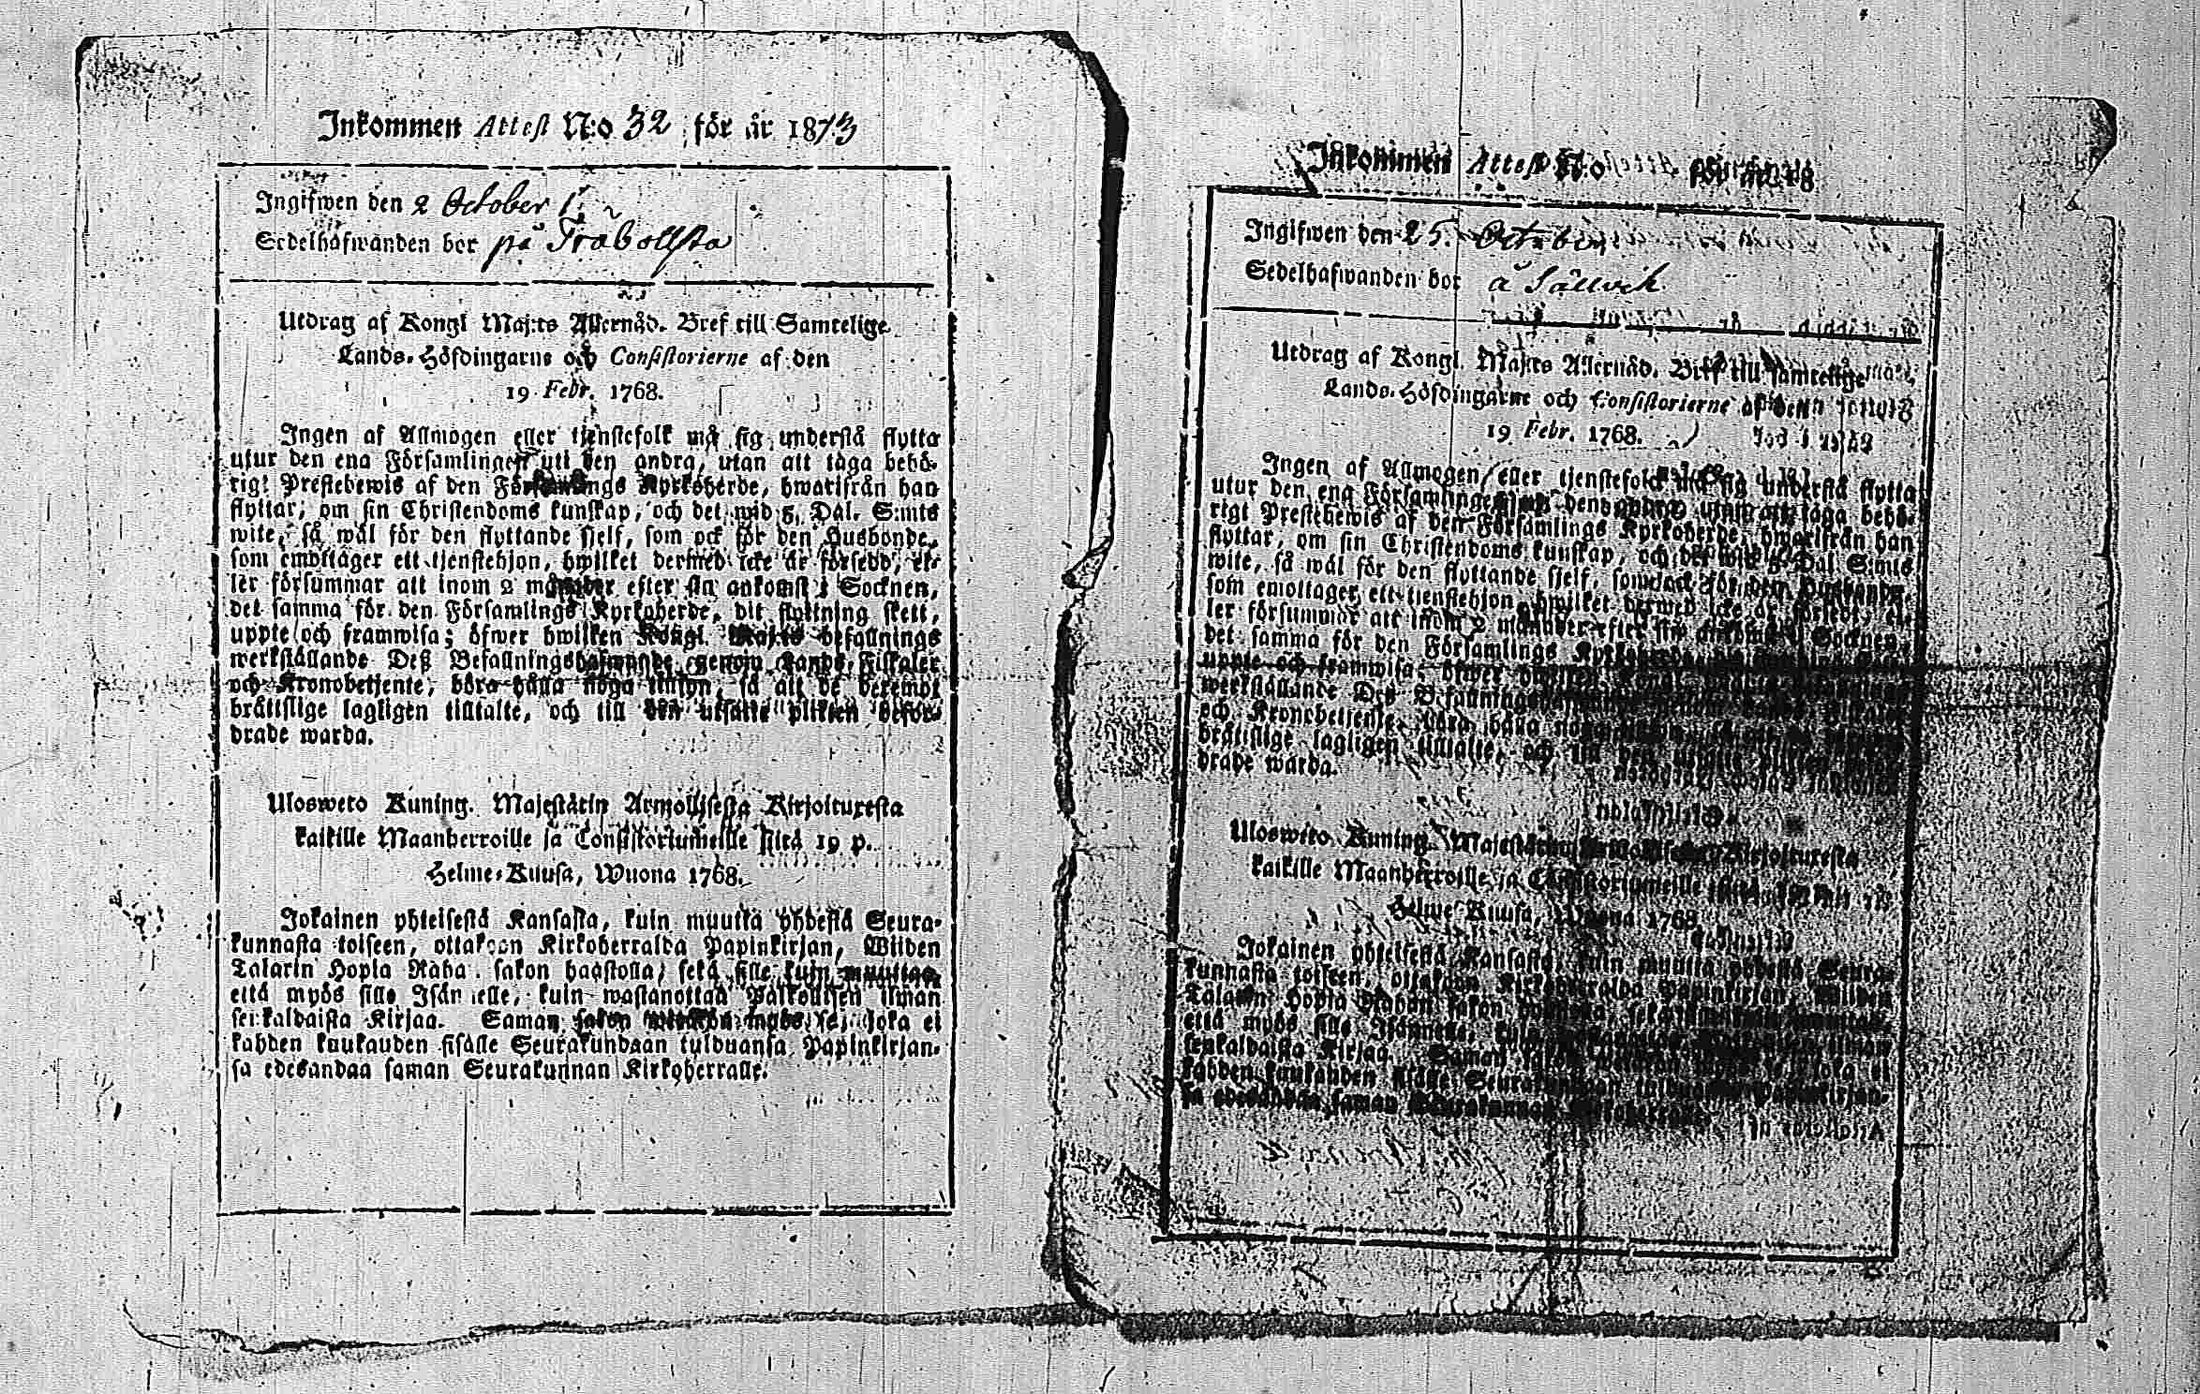 Inkommen Attest N:o 32 för år 1873
Ingifwen den 2 October
Sedelhafwanden bor på Träbollsta
Utdrag af Kongl Maj:ts Allernåd. Bref till Samtelige
Lands-Höfdingarne och Consistorierne af den
19 Febr. 1768.
Ingen af Allmogen eller tjenstefolk må sig understå flytta
utur den ena Församlingen uti den andra, utan att taga behö-
rigt Prestebewis af den Församlings Kyrkoherde, hwarifrån han
flyttar, om sin Christendoms kunskap, och det wid 5 Dal. S:mts
wite, så wäl för den flyttande sjelf, som ock för den Husbonde,
som emottager ett tjenstehjon, hwilket dermed icke är försedd, el-
ler försummar att inom 2 månader efter sin ankomst i Socknen,
det samma för den Församlings Kyrkoherde, dit flyttning skett,
uppte och framwisa; öfwer hwilken Kongl. Maj:ts befallnings
werkställande Deß Befallningshafwande genom Lands-Fiskaler
och Kronobetjente, böra hålla noga tillsyn, så att de
brättslige lagligen tilltalte, och till den utsatte plikten beför-
drade warda.
Ulosweto Kuning. Majestätin Armollisesta Kirjoituxesta
kaikille Maanherroille ja Consistoriumeille siitä 19 p.
Helme-Kuusa, Wuona 1768.
Jokainen yhteisestä Kansasta, kuin muutta yhdestä Seura-
kunnasta toiseen, ottakoon Kirkoherralda Papinkirjan, Wiiden
Talarin Hopia Raha sakon haastolla, sekä sille kuin muuttaa,
että myös sille Isännelle, kuin wastanottaa Palkollisen ilman
senkaldaista Kirjaa. Saman sakon wetäkön myös se, joka ei
kahden kuukauden sisälle Seurakundaan tulduansa Papinkirjan-
sa edesandaa saman Seurakunnan Kirkoherralle.
Inkommen Attest N:o för år 18
Ingifwen den 25. October
Sedelhafwanden bor å Sällvik
Utdrag af Kongl. Maj:ts Allernåd. Bref till samtelige
Lands-Höfdingarne och Consistorierne af den
19 Febr. 1768.
Ingen af Allmogen eller tjenstefolk må sig understå flytta
utur den ena Församlingen uti den andra, utan att taga behö-
rigt Prestebewis af den Församlings Kyrkoherde, hwarifrån han
flyttar, om sin Christendoms kunskap, och det wid 5 Dal S:mts
wite, så wäl för den flyttande sjelf, som ock för den Husbonde,
som emottager ett tjenstehjon, hwilket dermed icke är försedt, el-
ler försummar att inom 2 månader efter sin ankomst i Socknen,
det samma för den Församlings Kyrkoherde
uppte och framwisa; öfwer hwilken Kongl.
werkställande Deß Befallningshafwande genom
och Kronobetjente, böra hålla noga
brättslige lagligen tilltalte, och till den utsatte plikten
drade warda.
Ulosweto Kuning. Majestätin Armollisesta Kirjoituxesta
kaikille Maanherroille ja Consistoriumeille
Helme-Kuusa, Wuona 1768.
Jokainen yhteisestä Kansasta, kuin muutta yhdestä Seura-
kunnasta toiseen, ottakoon Kirkoherralda Papinkirjan, Wiiden
Talarin Hopia Rahan sakon haastolla, sekä
että myös sille Isännelle, kuin ilman
senkaldaista Kirjaa. Saman sakon joka ei
kahden kuukauden sisälle Seurakundaan tulduansa Papinkirjan-
sa edesandaa saman Seurakunnan Kirkoherralle.